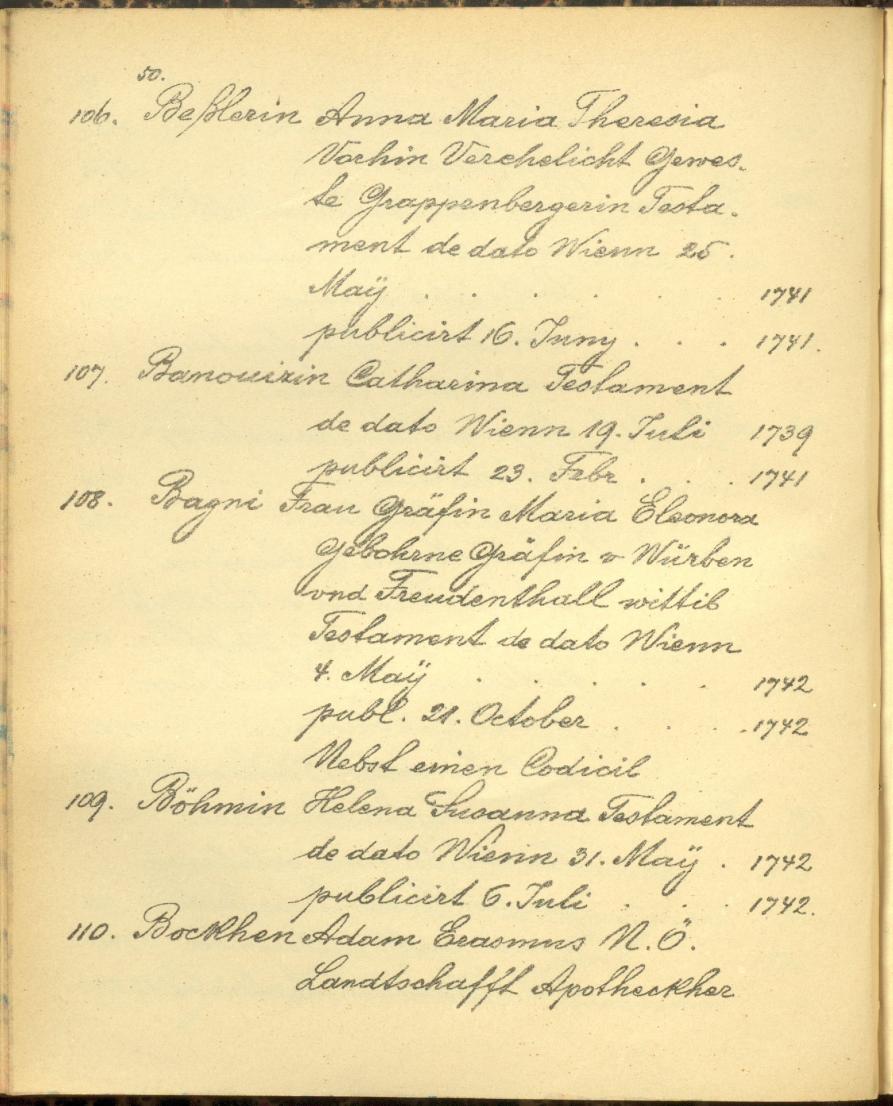 50.
106. Beßlerin Anna Maria Theresia
Vorhin Verehelicht Gewes-
te Grappenbergerin Testa-
ment de dato Wienn 25.
Maÿ . . . . . . 1741
publicirt 16. Juny . . . 1741.
107. Banouizin Catharina Testament
de dato Wienn 19. Juli 1739
publicirt 23. Febr . . . 1741
108. Bagni Frau Gräfin Maria Eleonora
Gebohrne Gräfin v Würben
vnd Freudenthall wittib
Testament de dato Wienn
4. Maÿ . . . . . 1742
publ. 21. October . . . 1742
Nebst einen Codicil
109. Böhmin Helena Susanna Testament
de dato Wienn 31. Maÿ . 1742
publicirt 6. Juli . . . 1742.
110. Bockhen Adam Erasmus N.Ö.
Landtschafft Apotheckher